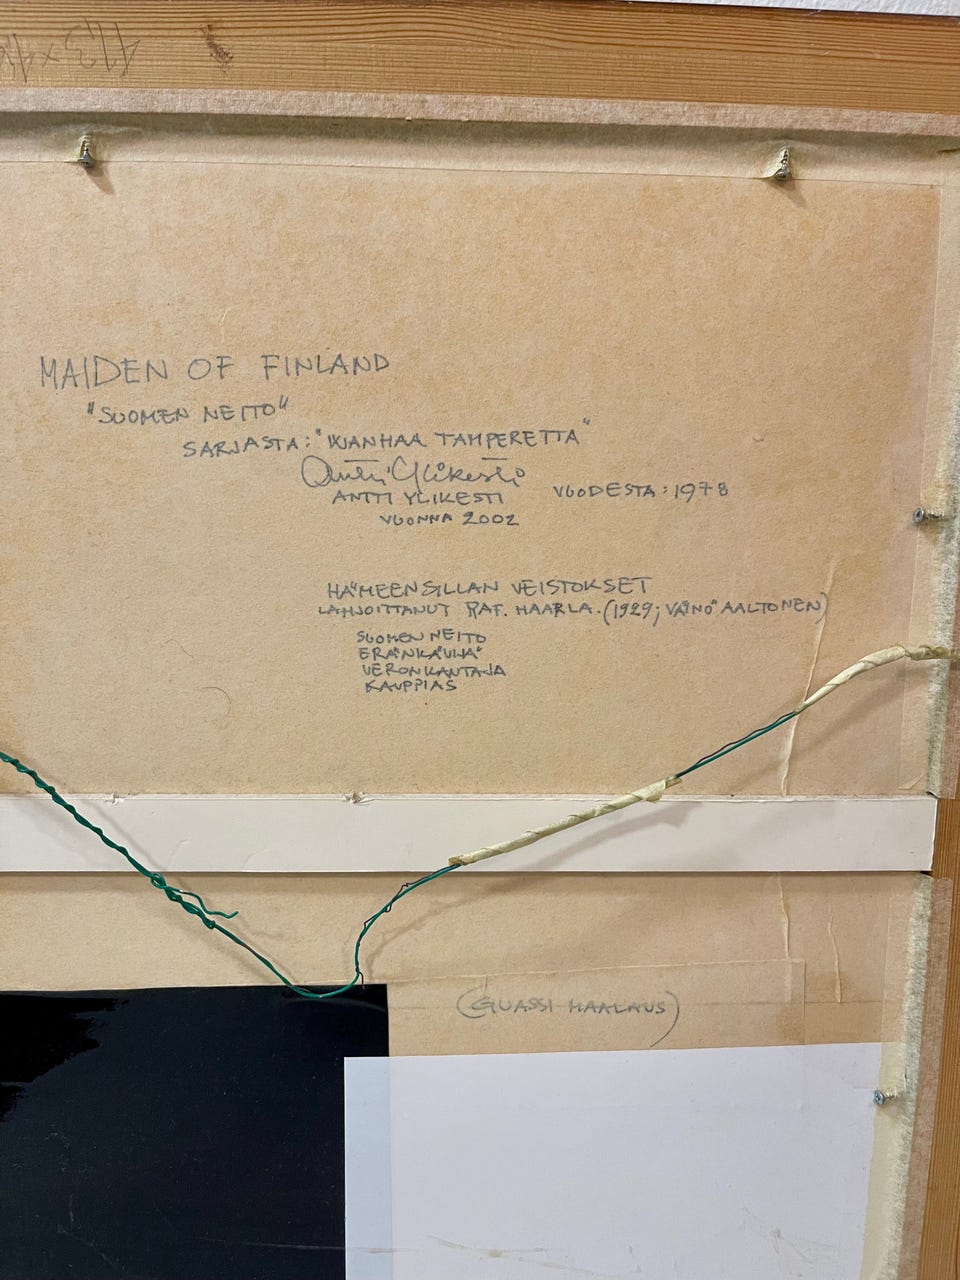 MAIDEN OF FINLAND
"SUOMEN NEITO"
SARJASTA: "WANHAA TAMPERETTA"
Antti Ylikesti
ANTTI YLIKESTI VUODESTA: 1978
VUONNA 2002
HÄMEENSILLAN VEISTOKSET
LAHJOITTANUT RAF. HAARLA. (1929; VÄINÖ AALTONEN)
SUOMEN NEITO
ERÄNKÄVIJÄ
VERONKANTAJA
KAUPPIAS
(GUASSI MAALAUS)